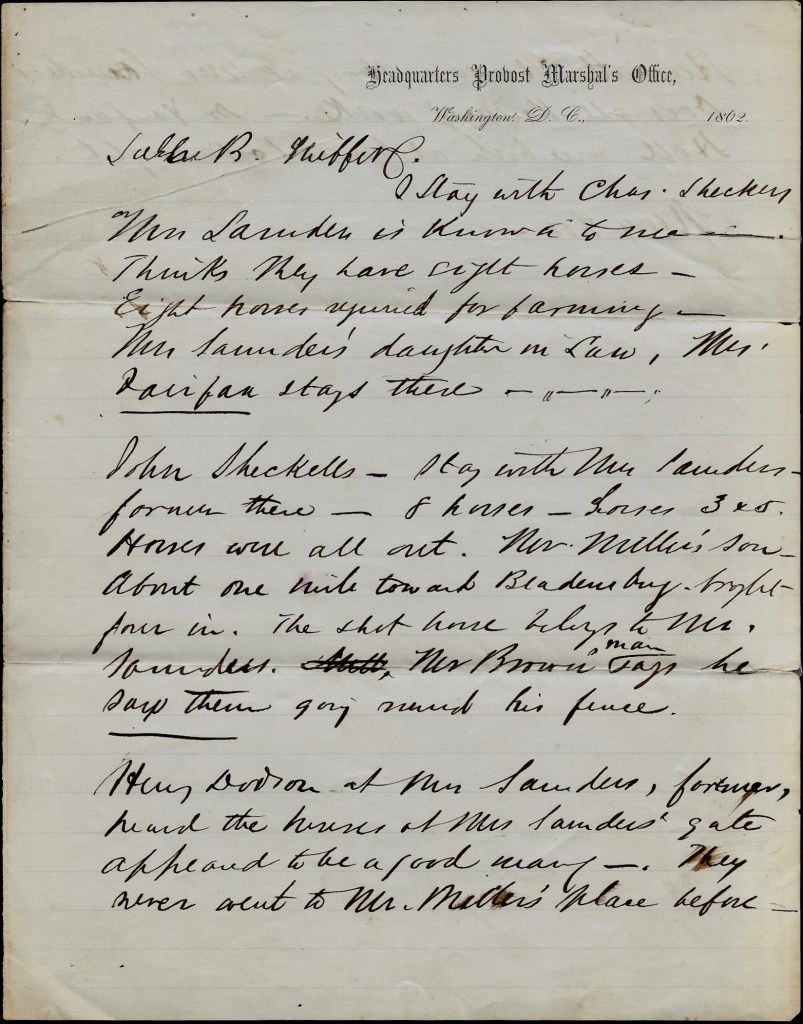 Headquarters Provost Marshal's Office,
Washington, D. C., 1862.
B.
I Stay with Chas. Sheckells
Mrs Saunders is known to me —.
Thinks they have eight horses —
Eight horses required for farming —
Mrs Saunders' daughter in Law, Mrs.
Fairfax stays there — " — " — ;
John Sheckells — Stay with Mrs Saunders —
farmer there — 8 horses — horses 3 & 5.
Horses were all out. Mr. Miller's son —
About one mile toward Bladensburg — bright
four in. The shot horse belongs to Mr.
Saunders. Mr Brown's man says he
saw them going round his fence.
Henry Dodson at Mrs Saunders, farmer,
heard the horses at Mrs Saunders' gate
appeared to be a good many —. They
never went to Mr. Miller's place before —